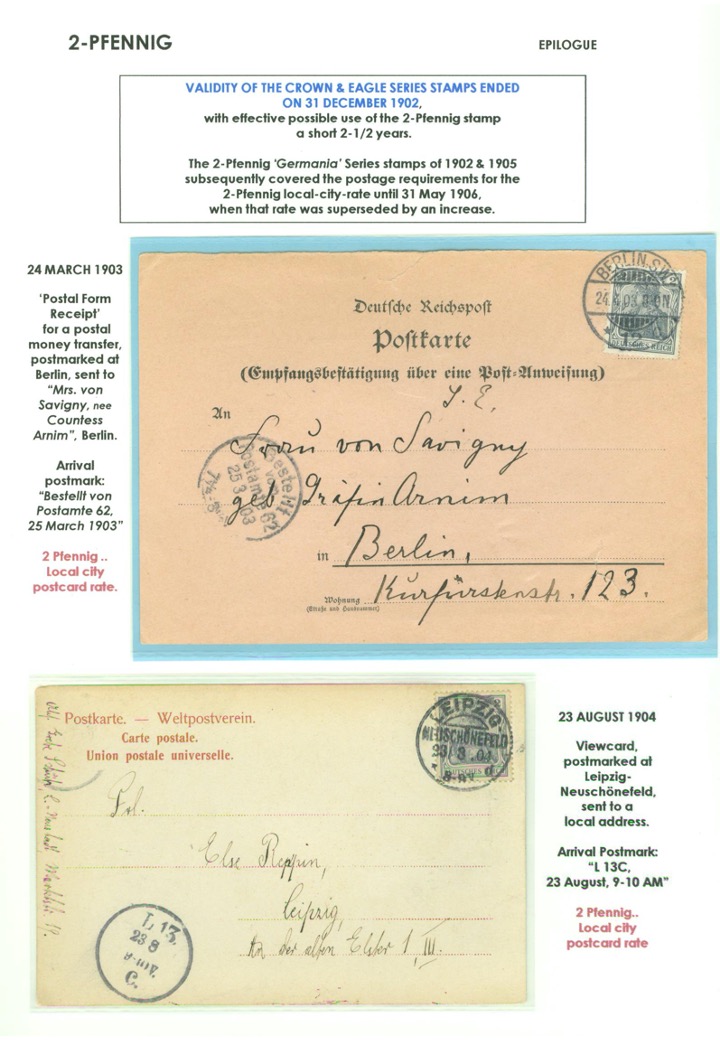 2-PFENNIG
EPILOGUE
VALIDITY OF THE CROWN & EAGLE SERIES STAMPS ENDED
ON 31 DECEMBER 1902,
with effective possible use of the 2-Pfennig stamp
a short 2-1/2 years.
The 2-Pfennig ‘Germania’ Series stamps of 1902 & 1905
subsequently covered the postage requirements for the
2-Pfennig local-city-rate until 31 May 1906,
when that rate was superseded by an increase.
24 MARCH 1903
‘Postal Form
Receipt’
for a postal
money transfer,
postmarked at
Berlin, sent to
“Mrs. von
Savigny, nee
Countess
Arnim”, Berlin.
Arrival
postmark:
“Bestellt von
Postamte 62,
25 March 1903”
2 Pfennig ..
Local city
postcard rate.
BERLIN S.W.
Deutsche Reichspost
Postkarte
(Empfangsbestätigung über eine Post-Anweisung)
An
Frau von Savigny
geb Gräfin Arnim
Bestellt
vom
Postamte 62
25 3 03
in Berlin,
Wohnung Kurfürstenstr. 123.
(Straße und Hausnummer)
Postkarte. — Weltpostverein.
Carte postale.
Union postale universelle.
LEIPZIG
NEUSCHÖNEFELD
Frl.
Else Reppin,
Leipzig,
An der alten Elster 1, III.
L 13.
23 8
C.
23 AUGUST 1904
Viewcard,
postmarked at
Leipzig-
Neuschönefeld,
sent to a
local address.
Arrival Postmark:
“L 13C,
23 August, 9-10 AM”
2 Pfennig..
Local city
postcard rate